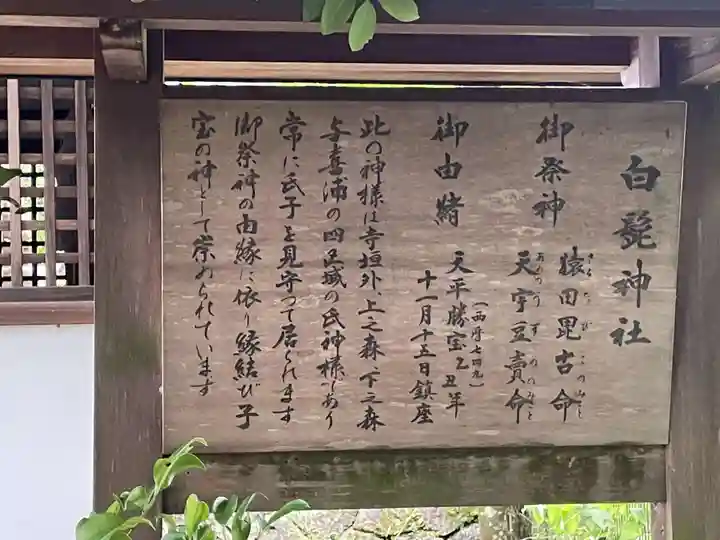 白髭神社
御祭神 猿田毘古命
さるたびこのみこと
天宇豆賣命
あめのうずめのみこと
御由緒 天平勝宝乙丑年
(西暦七四九)
十一月十五日鎮座
此の神様は寺垣外、上之森、下之森
与喜浦の四区域の氏神様であり
常に氏子を見守って居られます
御祭神の由縁に依り縁結び子
宝の神として崇められています